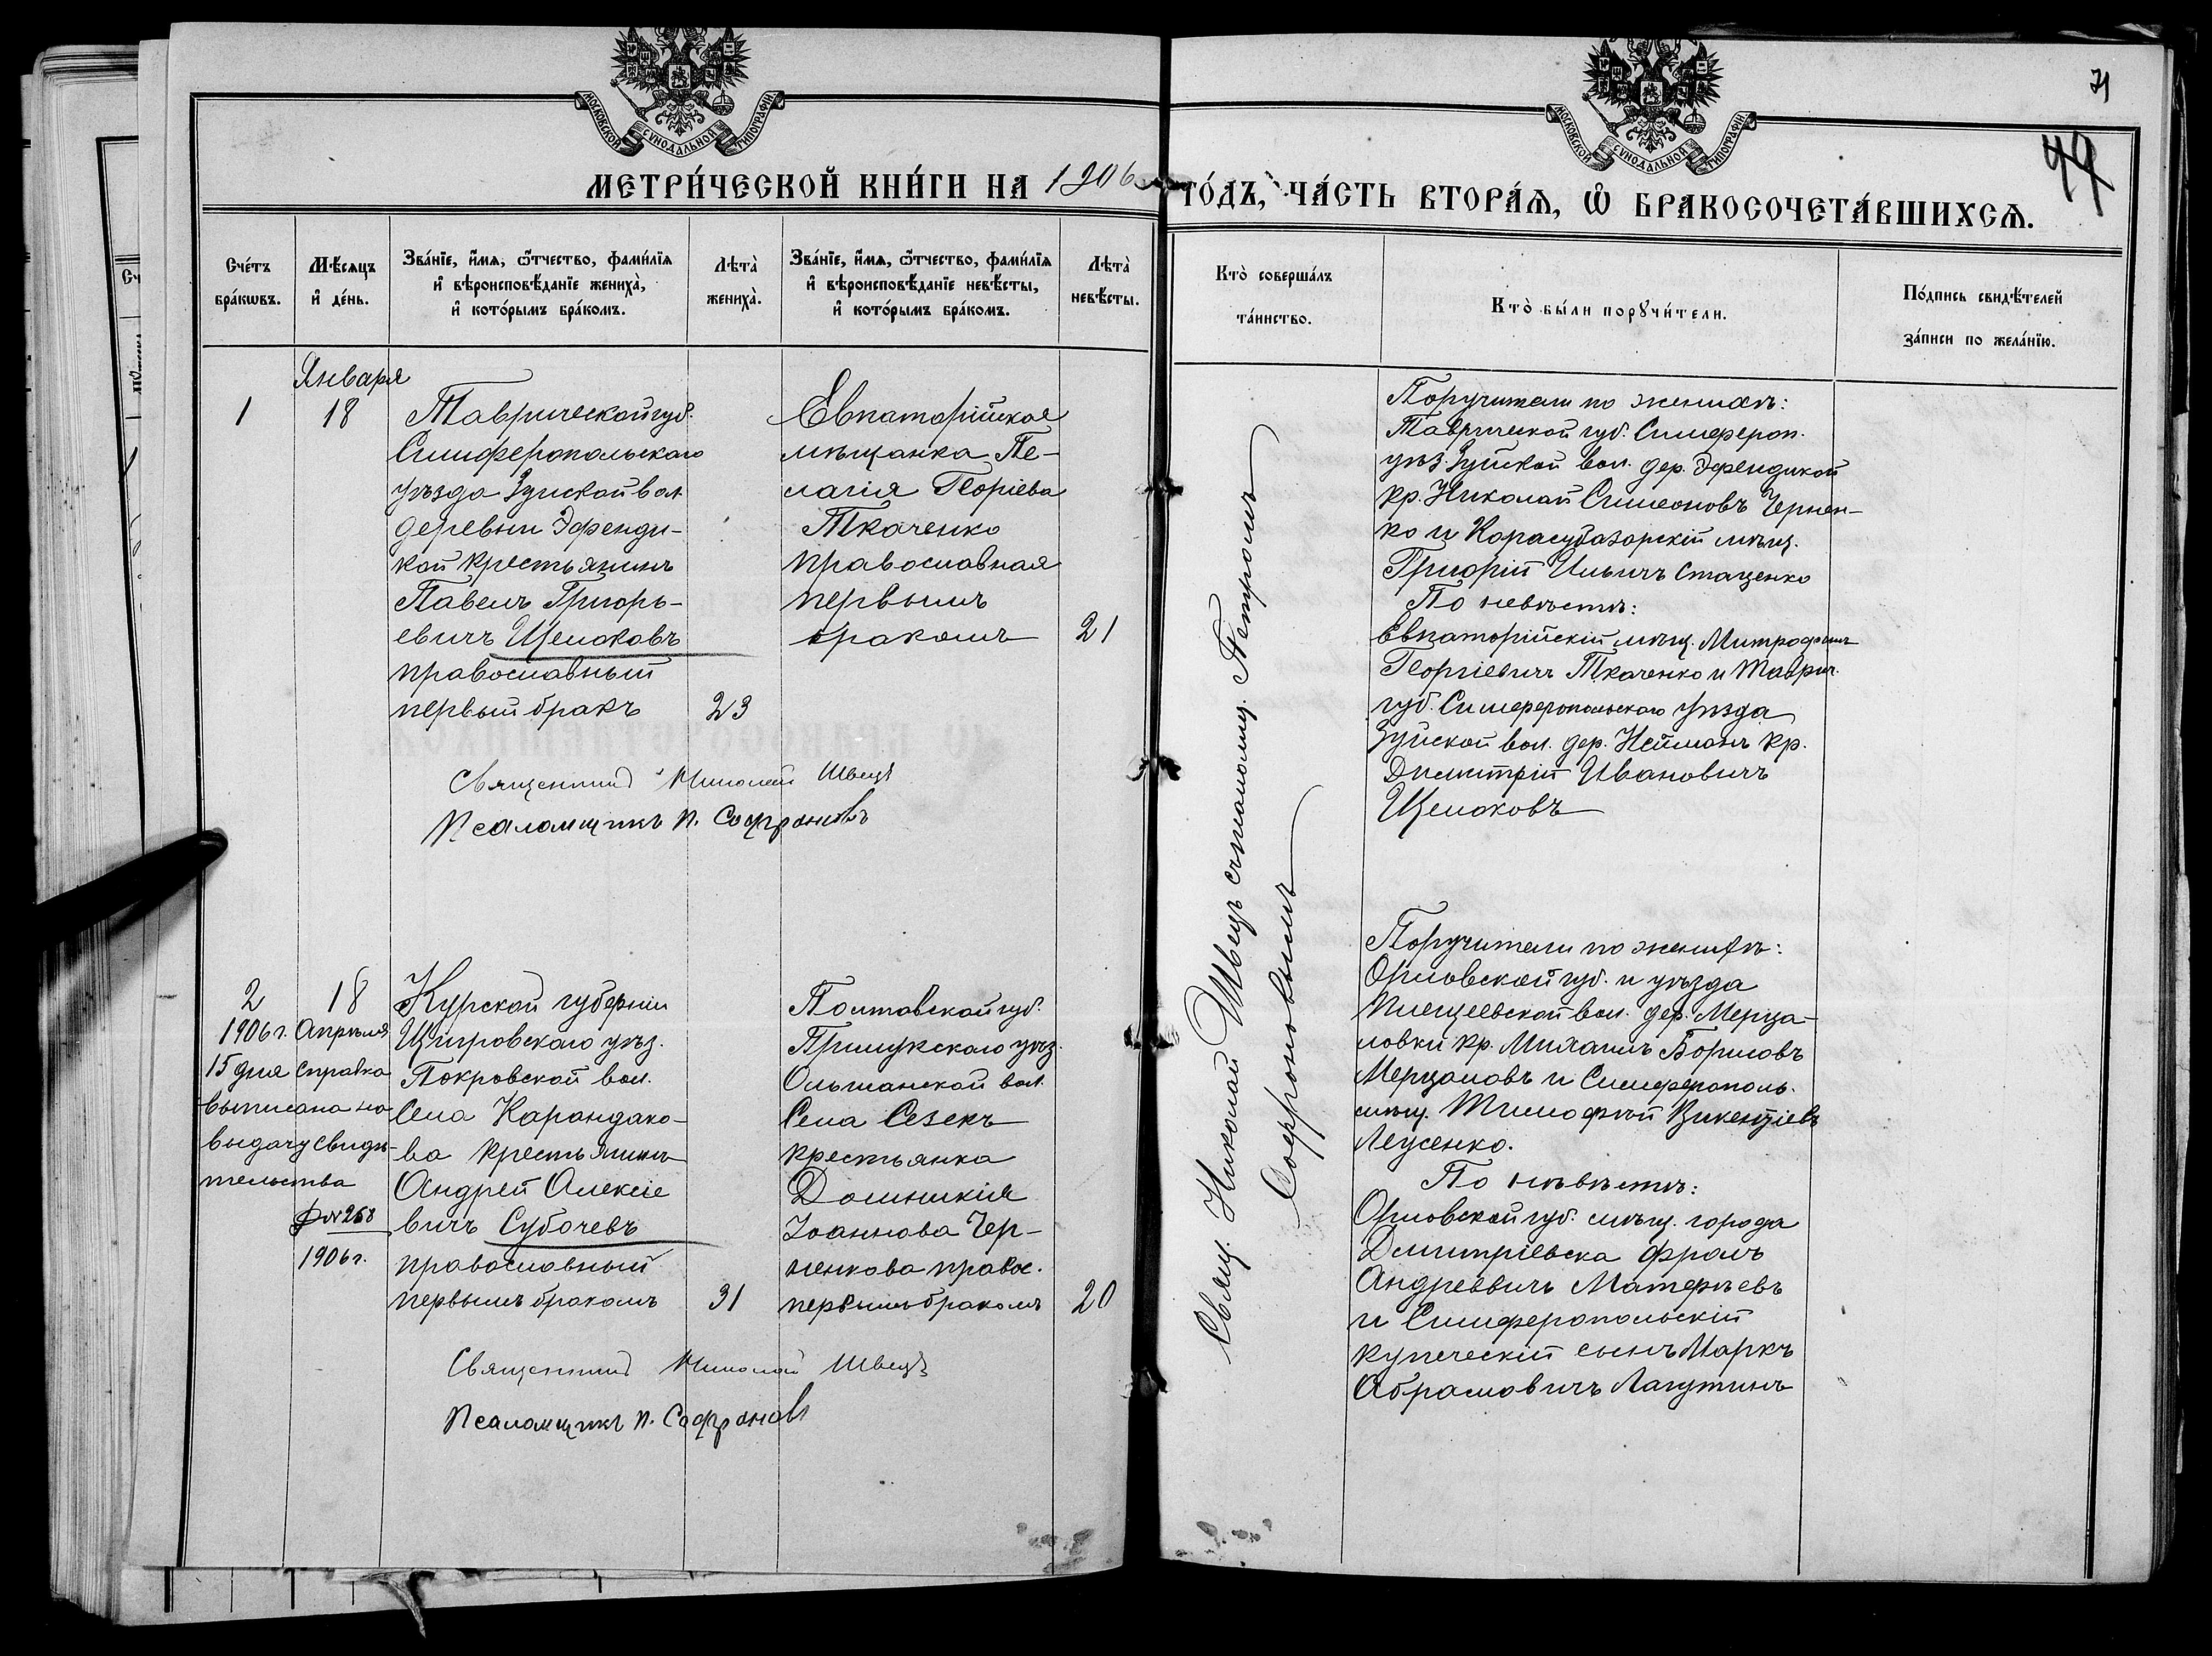 МОСКОВСКОЙ СѴНОДАЛЬНОЙ ТИПОГРАФІИ.
МОСКОВСКОЙ СѴНОДАЛЬНОЙ ТИПОГРАФІИ.
71
МЕТРИ́ЧЕСКОЙ КНИ́ГИ НА 1906 ГО́ДЪ, ЧА́СТЬ ВТОРА́Ѧ, Ѡ҆ БРАКОСОЧЕТА́ВШИХСѦ.
Сче́тъ бра́кѡвъ.
Мѣ́сѧцъ и҆ де́нь.
Зва́нїе, и҆́мѧ, ѻ҆́тчество, фами́лїѧ и҆ вѣроисповѣ́данїе жениха̀, и҆ кото́рымъ бра́комъ.
Лѣта̀ жениха̀.
Зва́нїе, и҆́мѧ, ѻ҆́тчество, фами́лїѧ и҆ вѣроисповѣ́данїе невѣ́сты, и҆ кото́рымъ бра́комъ.
Лѣта̀ невѣ́сты.
Кто̀ соверша́лъ та́инство.
Кто̀ бы́ли порꙋчи́тели.
По́дпись свидѣ́телей за́писи по жела́нїю.
Января
1
18
Таврической губ.
Симферопольскаго
уѣзда Зуйской вол.
деревни Эфенди-
кой крестьянинъ
Павелъ Григорь-
евичъ Щелоковъ
православный
первый бракъ
23
Евпаторійская
мѣщанка Пе-
лагія Георгіева
Ткаченко
православная
первымъ
бракомъ
21
Священникъ Николай Швецъ
Псаломщикъ П. Софроновъ
Свящ. Николай Швецъ съ псаломщ. Петромъ
Софроновымъ
Поручители по женихѣ:
Таврической губ. Симфероп.
уѣз. Зуйской вол. дер. Эфендикой
кр. Николай Симеоновъ Чернен-
ко и Карасубазарскій мѣщ.
Григорій Ильичъ Стаценко
По невѣстѣ:
Евпаторійскій мѣщ. Митрофанъ
Георгіевичъ Ткаченко и Таврич.
губ. Симферопольскаго уѣзда
Зуйской вол. дер. Нейманъ кр.
Димитрій Ивановичъ
Щелоковъ
2
18
1906 г. Апрѣля
15 дня справка
выписана на
выдачу свидѣ-
тельства
№ 268
1906 г.
Курской губерніи
Щигровскаго уѣз.
Покровской вол.
Села Карандако-
ва крестьянинъ
Андрей Алексіе
вичъ Субочевъ
православный
первымъ бракомъ
31
Полтавской губ.
Прилукскаго уѣз.
Ольшанской вол.
Села Сезекъ
крестьянка
Домникія
Іоаннова Чер-
ненкова правос.
первымъ бракомъ
20
Священникъ Николай Швецъ
Псаломщикъ П. Софроновъ
Поручители по женихѣ:
Орловской губ. и уѣзда
Плещеевской вол. дер. Мерца-
ловки кр. Михаилъ Борисовъ
Мерцаловъ и Симферополь.
мѣщ. Тимофѣй Викентіевъ
Леусенко.
По нѣвѣстѣ:
Орловской губ. мѣщ. города
Дмитріевска Фролъ
Андреевичъ Матфѣевъ
и Симферопольскій
купеческій сынъ Маркъ
Абрамовичъ Лагутинъ